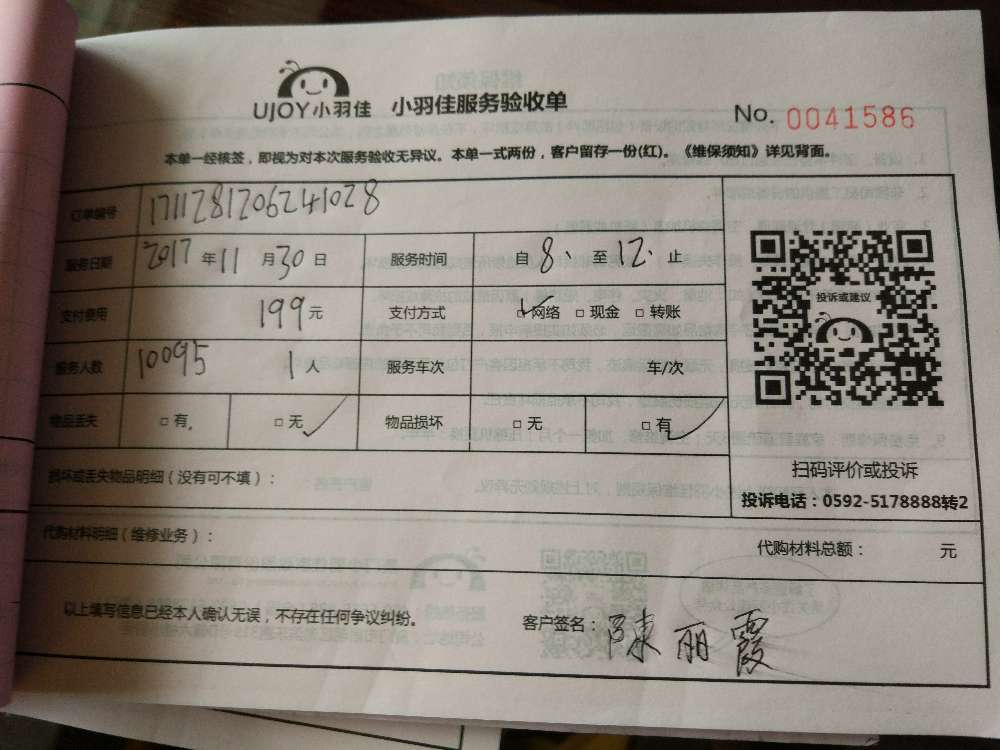 UJOY小羽佳 小羽佳服务验收单
No. 0041586
本单一经核签，即视为对本次服务验收无异议。本单一式两份，客户留存一份(红)。《维保须知》详见背面。
订单编号 171128120624 1028
服务日期 2017 年 11 月 30 日 服务时间 自 8、 至 12. 止
支付费用 199 元 支付方式 ☑ 网络 □ 现金 □ 转账
服务人数 10095 1 人 服务车次 车/次
物品丢失 □ 有 □ 无 ✓ 物品损坏 □ 无 □ 有 ✓
投诉或建议
扫码评价或投诉
投诉电话：0592-5178888转2
损坏或丢失物品明细（没有可不填）：
代购材料明细（维修业务）： 代购材料总额： 元
以上填写信息已经本人确认无误，不存在任何争议纠纷。 客户签名：陳丽霞